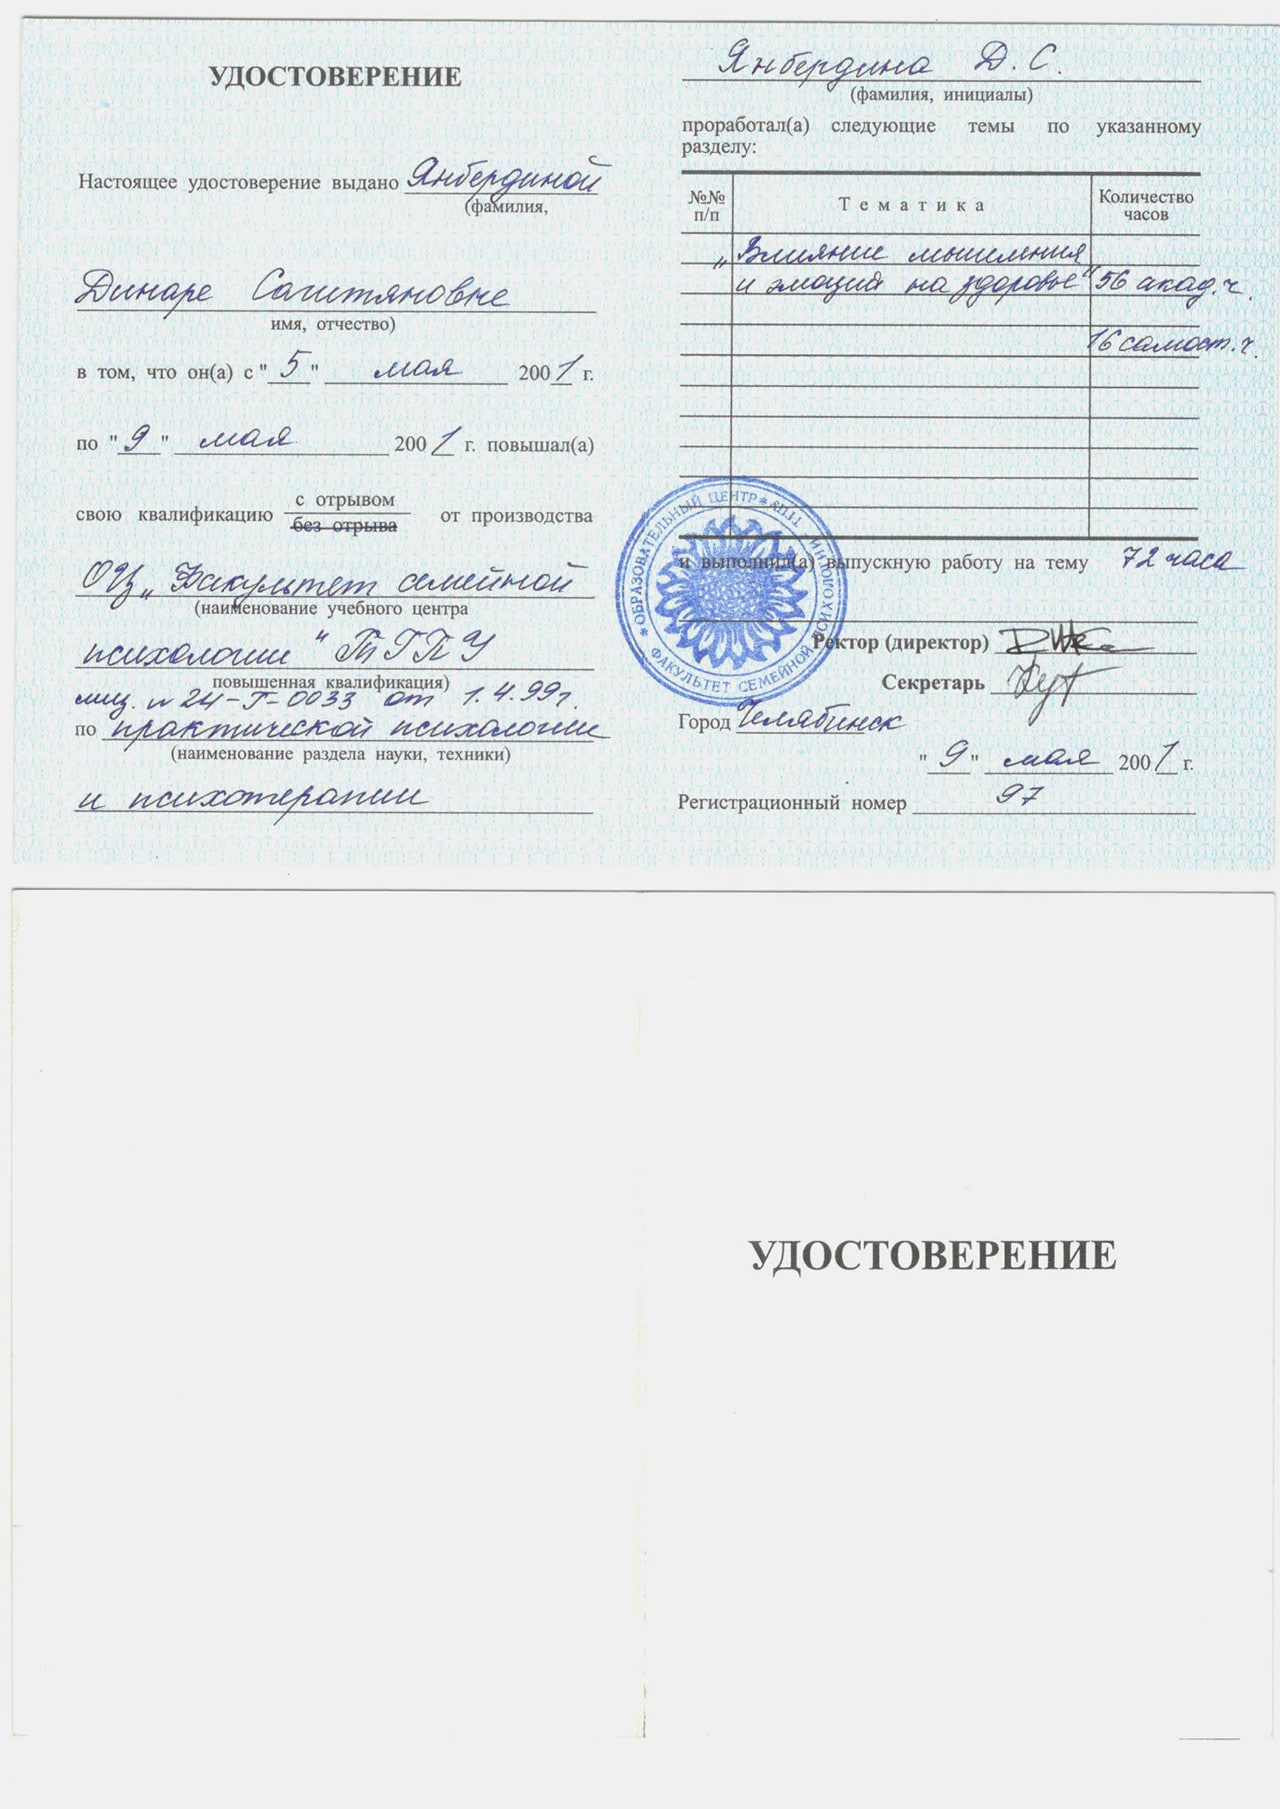 УДОСТОВЕРЕНИЕ
Настоящее удостоверение выдано Янбердиной
(фамилия,
Динаре Сагитяновне
имя, отчество)
в том, что он(а) с "5" мая 2001 г.
по "9" мая 2001 г. повышал(а)
с отрывом
свою квалификацию без отрыва от производства
ОЦ „Факультет семейной
(наименование учебного центра
психологии" ТГПУ
повышенная квалификация)
лиц. № 24-Г-0033 от 1.4.99г.
по практической психологии
(наименование раздела науки, техники)
и психотерапии
Янбердина Д. С.
(фамилия, инициалы)
проработал(а) следующие темы по указанному
разделу:
№№ п/п Тематика Количество часов
„Влияние мышления
и эмоций на здоровье" 56 акад. ч.
16 самост. ч.
и выполнил(а) выпускную работу на тему 72 часа
Ректор (директор)
Секретарь
Город Челябинск
"9" мая 2001 г.
Регистрационный номер 97
* ОБРАЗОВАТЕЛЬНЫЙ ЦЕНТР *
ФАКУЛЬТЕТ СЕМЕЙНОЙ ПСИХОЛОГИИ ТГПУ
УДОСТОВЕРЕНИЕ